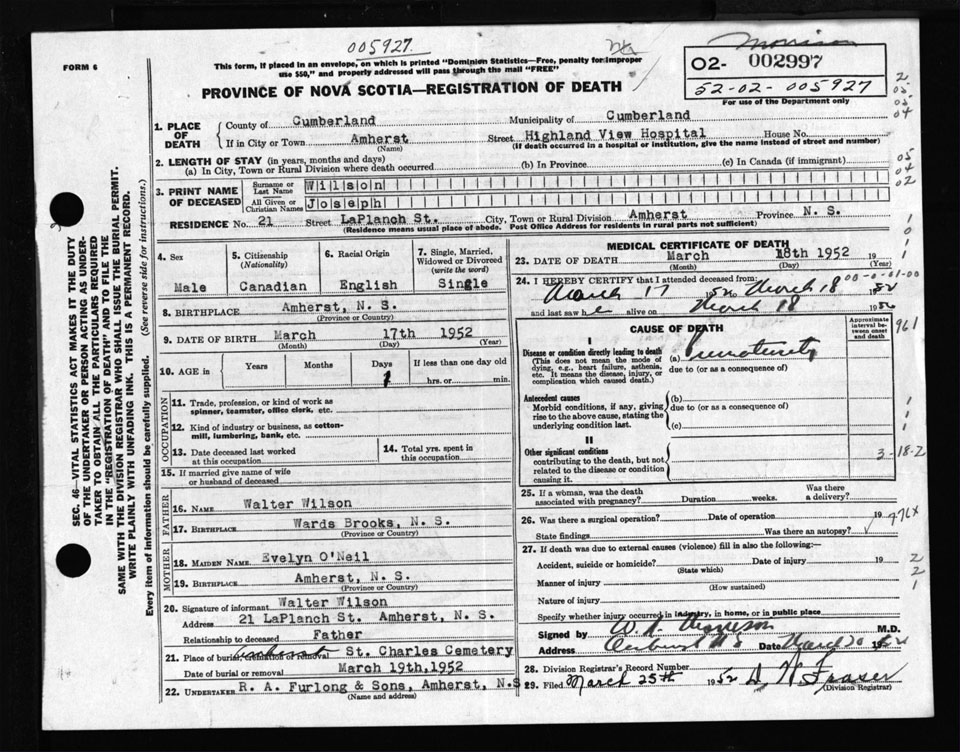 005927.
Morrison
FORM 6
This form, if placed in an envelope, on which is printed "Dominion Statistics—Free, penalty for improper
use $50," and properly addressed will pass through the mail "FREE"
O2- 002997
52-02-005927
For use of the Department only
PROVINCE OF NOVA SCOTIA—REGISTRATION OF DEATH
1. PLACE OF DEATH
County of Cumberland Municipality of Cumberland
If in City or Town Amherst Street Highland View Hospital House No.
(Name) (If death occurred in a hospital or institution, give the name instead of street and number)
2. LENGTH OF STAY (in years, months and days)
(a) In City, Town or Rural Division where death occurred (b) In Province (c) In Canada (if immigrant)
3. PRINT NAME OF DECEASED
Surname or Last Name Wilson
All Given or Christian Names Joseph
RESIDENCE No. 21 Street LaPlanch St. City, Town or Rural Division Amherst Province N. S.
(Residence means usual place of abode. Post Office Address for residents in rural parts not sufficient)
4. Sex
Male
5. Citizenship (Nationality)
Canadian
6. Racial Origin
English
7. Single, Married, Widowed or Divorced (write the word)
Single
8. BIRTHPLACE Amherst, N. S.
(Province or Country)
9. DATE OF BIRTH March 17th 1952
(Month) (Day) (Year)
10. AGE in Years Months Days If less than one day old
1 hrs. or min.
OCCUPATION
11. Trade, profession, or kind of work as
spinner, teamster, office clerk, etc.
12. Kind of industry or business, as cotton-
mill, lumbering, bank, etc.
13. Date deceased last worked
at this occupation
14. Total yrs. spent in
this occupation
15. If married give name of wife
or husband of deceased
FATHER
16. NAME Walter Wilson
17. BIRTHPLACE Wards Brooks, N. S.
(Province or Country)
MOTHER
18. MAIDEN NAME Evelyn O'Neil
19. BIRTHPLACE Amherst, N. S.
(Province or Country)
20. Signature of informant Walter Wilson
Address 21 LaPlanch St. Amherst, N. S.
Relationship to deceased Father
21. Place of burial, cremation or removal Amherst St. Charles Cemetery
Date of burial or removal March 19th,1952
22. UNDERTAKER R. A. Furlong & Sons, Amherst, N.S
(Name and address)
MEDICAL CERTIFICATE OF DEATH
23. DATE OF DEATH March 18th 1952 19
(Month) (Day) (Year)
24. I HEREBY CERTIFY that I attended deceased from:
March 17 1952 to March 18 1952
and last saw h e alive on March 18 1952
00-0-01-00
CAUSE OF DEATH
Approximate interval between onset and death
I
Disease or condition directly leading to death
(This does not mean the mode of
dying, e.g., heart failure, asthenia,
etc. It means the disease, injury, or
complication which caused death.)
(a) Prematurity
due to (or as a consequence of)
Antecedent causes
Morbid conditions, if any, giving
rise to the above cause, stating the
underlying condition last.
(b)
due to (or as a consequence of)
(c)
II
Other significant conditions
contributing to the death, but not
related to the disease or condition
causing it.
961
3-18-2
25. If a woman, was the death
associated with pregnancy? Duration weeks. Was there
a delivery?
26. Was there a surgical operation? Date of operation 19
State findings Was there an autopsy?
776X
27. If death was due to external causes (violence) fill in also the following:—
Accident, suicide or homicide? Date of injury 19
(State which)
Manner of injury
(How sustained)
Nature of injury
Specify whether injury occurred in industry, in home, or in public place
Signed by M.D.
Address Amherst N S Date March 20 1952
28. Division Registrar's Record Number
29. Filed March 25th 1952 D W Fraser
(Division Registrar)
SEC. 46—VITAL STATISTICS ACT MAKES IT THE DUTY
OF THE UNDERTAKER OR PERSON ACTING AS UNDER-
TAKER TO OBTAIN ALL THE PARTICULARS REQUIRED
IN THE "REGISTRATION OF DEATH" AND TO FILE THE
SAME WITH THE DIVISION REGISTRAR WHO SHALL ISSUE THE BURIAL PERMIT.
WRITE PLAINLY WITH UNFADING INK. THIS IS A PERMANENT RECORD.
Every item of information should be carefully supplied. (See reverse side for instructions.)